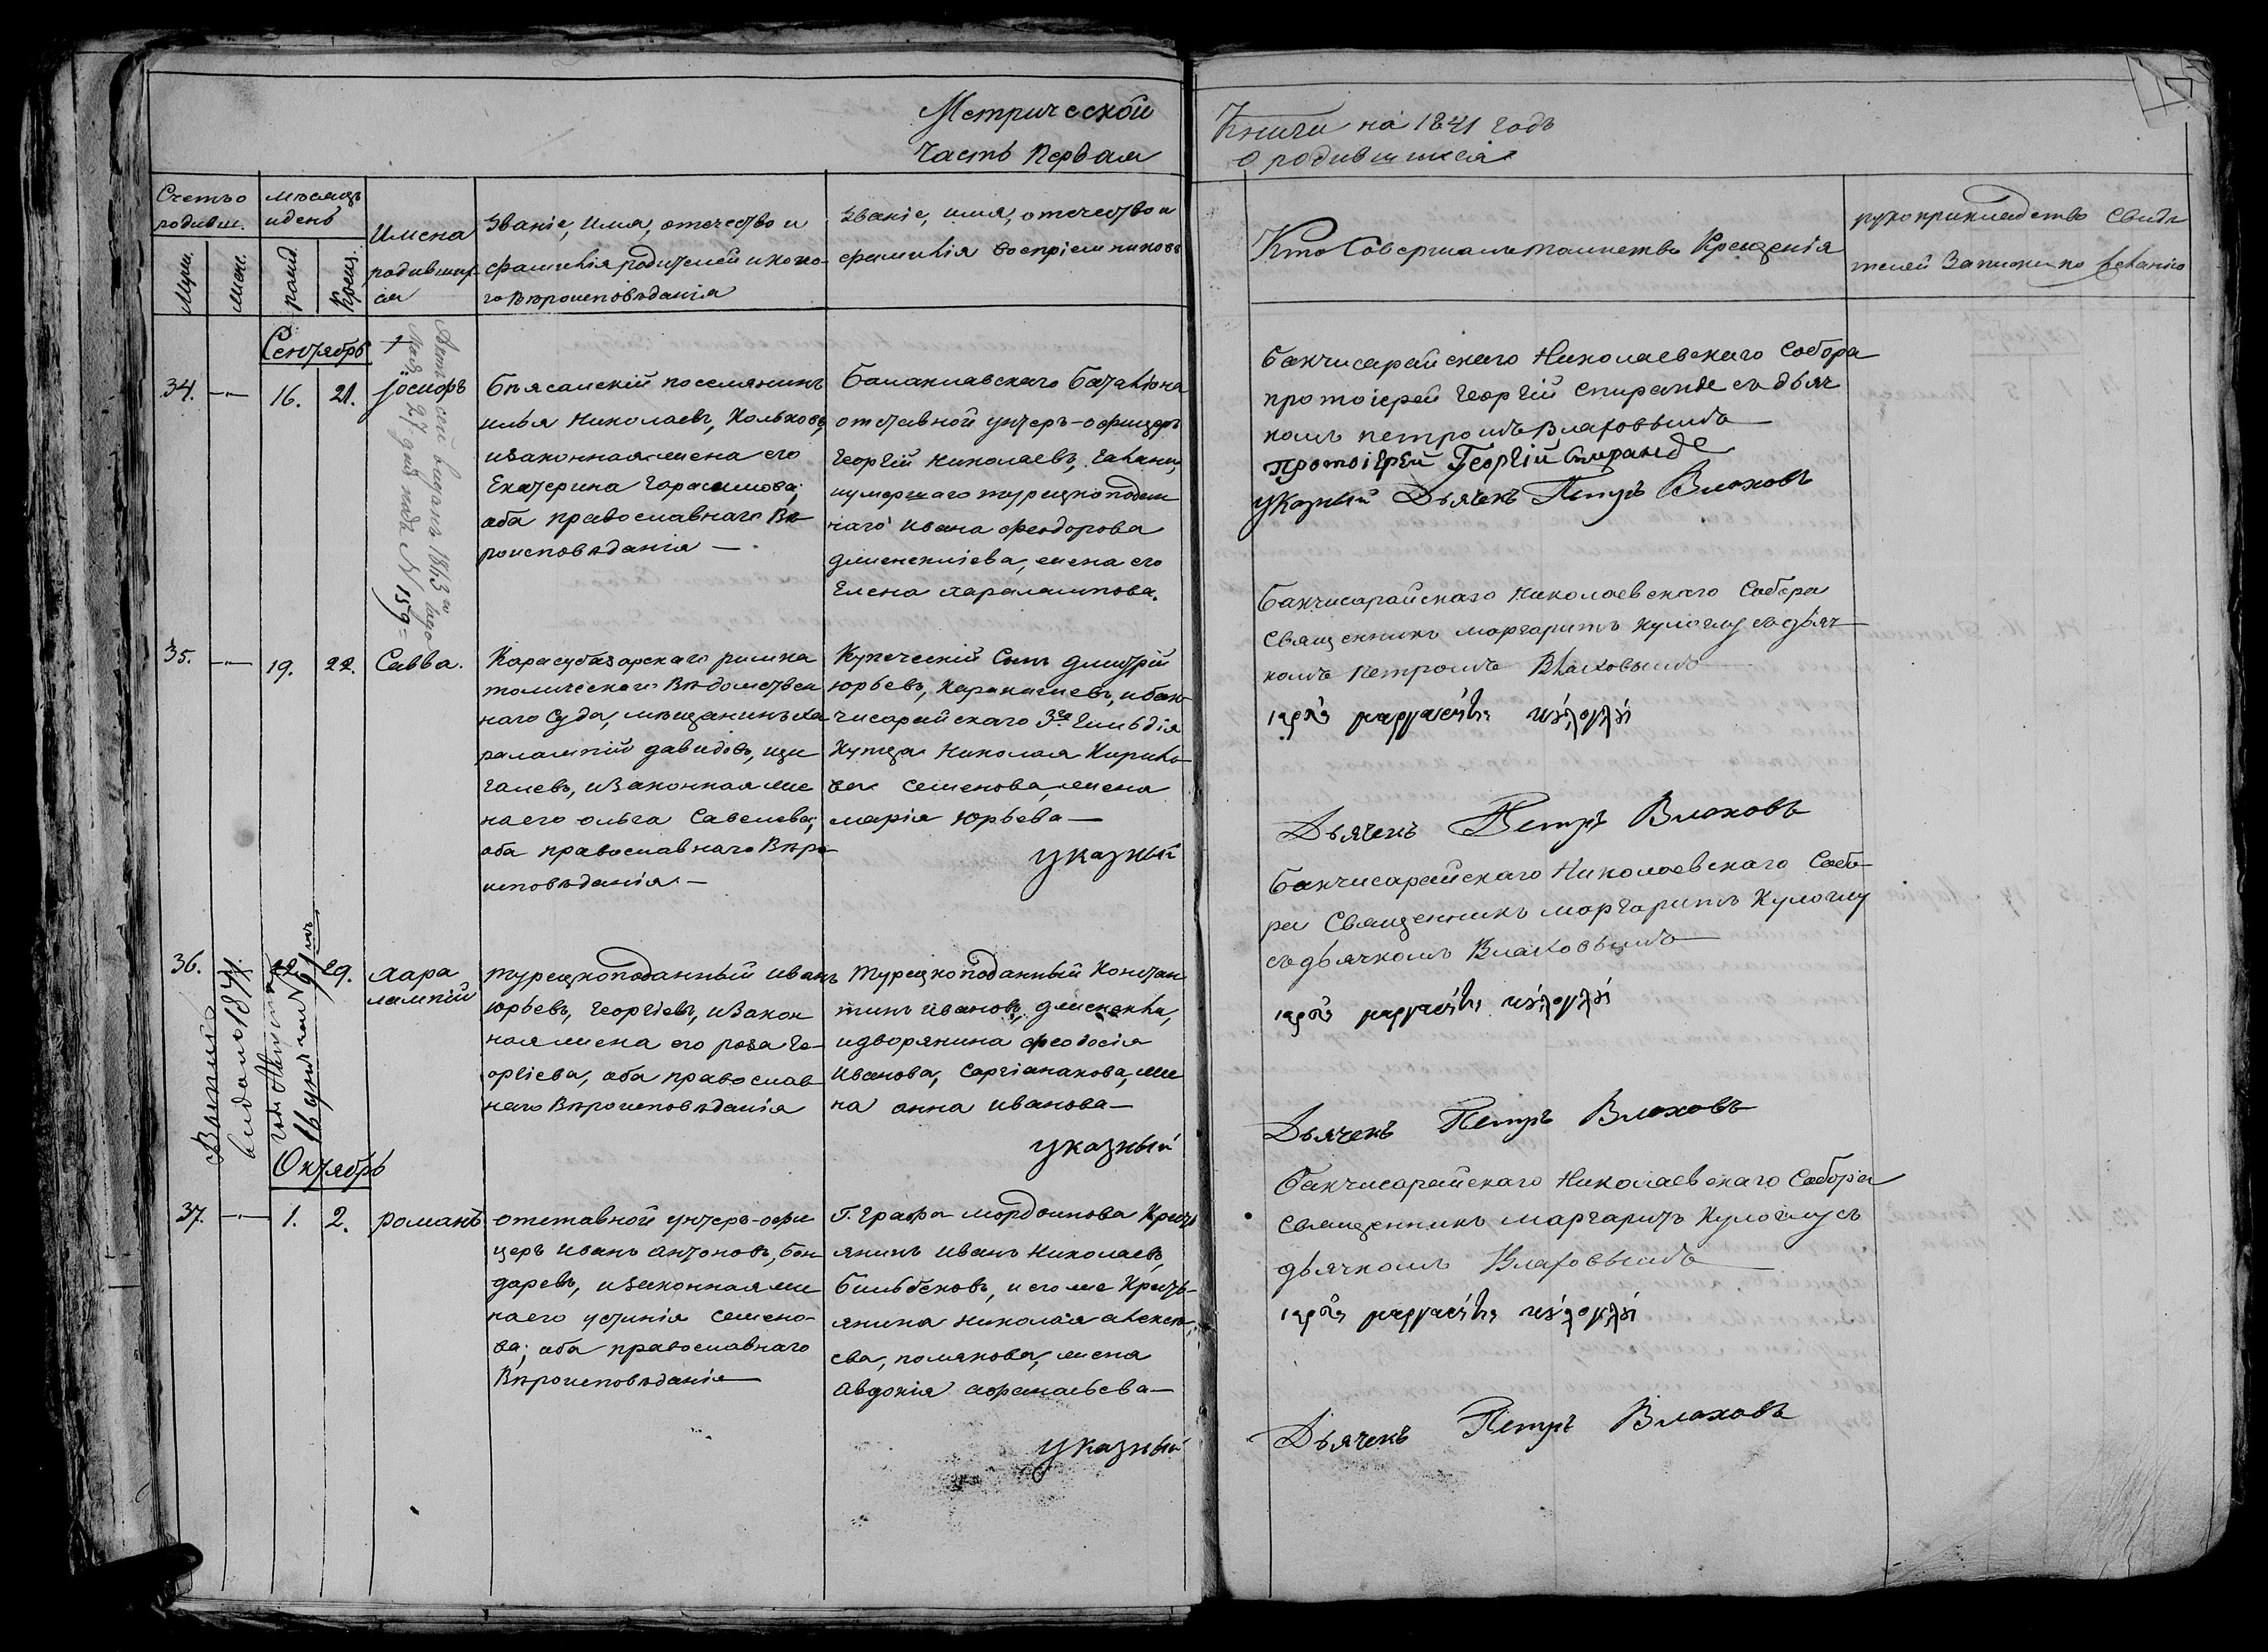 Метрической
Часть Первая
Книги на 1841 годъ
о родившихся
Счетъ о
родивш.
мѣсяцъ
и день
Имена
родивших
ся
Званіе, Имя, отечество и
фамилія родителей и како-
го вѣроисповѣданія
Званіе, имя, отечество и
фамилія воспріемниковъ
Кто Совершалъ таинство Крещенія
рукоприкладство Свидѣ
телей Записи по желанію
Муж.
Женс.
рожд.
Крещ.
Сентябрь
34.
16.
21.
Іосифъ
сей выданъ 1843 года
Мая 27 дня подъ N 159
посѣлянинъ
илья Николаевъ,
и законная жена его
Екатерина Гарасимова;
оба православнаго Вѣ
роисповѣданія —
Балаклавскаго Баталіона
отставной унтеръ-офицеръ
Георгій Николаевъ,
и умершаго турецкоподан
наго Ивана Феодорова
жена его
Елена Харалампова.
Бакчисарайскаго Николаевскаго Собора
протоіерей Георгій Спиранде съ дьяч
комъ петромъ Влаховымъ
Протоіерей Георгій Спиранде
указный Дьячекъ Петръ Влаховъ
35.
19.
22.
Савва.
Карасубазарскаго римка
толическаго Вѣдомствен
наго Суда, мѣщанинъ Ха
рлампій давидовъ,
и Законная же
на его ольга Савелева;
оба православнаго Вѣро
исповѣданія. —
Купеческій Сынъ дмитрій
юрьевъ, и бах-
чисарайскаго 3й Гильдія
Купца Николая Кирило
ва Семенова, жена
марія Юрьева —
указный
Бакчисарайскаго Николаевскаго Собора
Священникъ маргаритъ Кулоглу съ дьяч
комъ Петромъ Влаховымъ
Дьячекъ Петръ Влаховъ
36.
29.
Хара
лампій
Выписъ
видано 1871.
турецкоподанный иванъ
юрьевъ, Георгіевъ, и Закон
ная жена его роза Ге-
оргіева, оба православ
наго Вѣроисповѣданія
Турецкоподанный Констан
тинъ Ивановъ,
и дворянина феодосія
Иванова, Саргіанакова, же
на анна иванова —
указный
Бакчисарайскаго Николаевскаго Собо-
ра Священникъ маргаритъ Кулоглу
съ дьячкомъ Влаховымъ
Дьячекъ Петръ Влаховъ
Октябрь
37.
1.
2.
романъ
отставной унтеръ-офи
церъ иванъ антоновъ, бон
даревъ, и законная же
на его устинія Семено-
ва; оба православнаго
Вѣроисповѣданія —
Г. Графа мордвинова Кресть
янинъ иванъ Николаевъ,
и его же Кресть-
янина Николая алексѣ-
ева, полякова, жена
Авдокія афанасьева —
указный
Бакчисарайскаго Николаевскаго Собора
Священникъ маргаритъ Кулоглу съ
дьячкомъ Влаховымъ
Дьячекъ Петръ Влаховъ